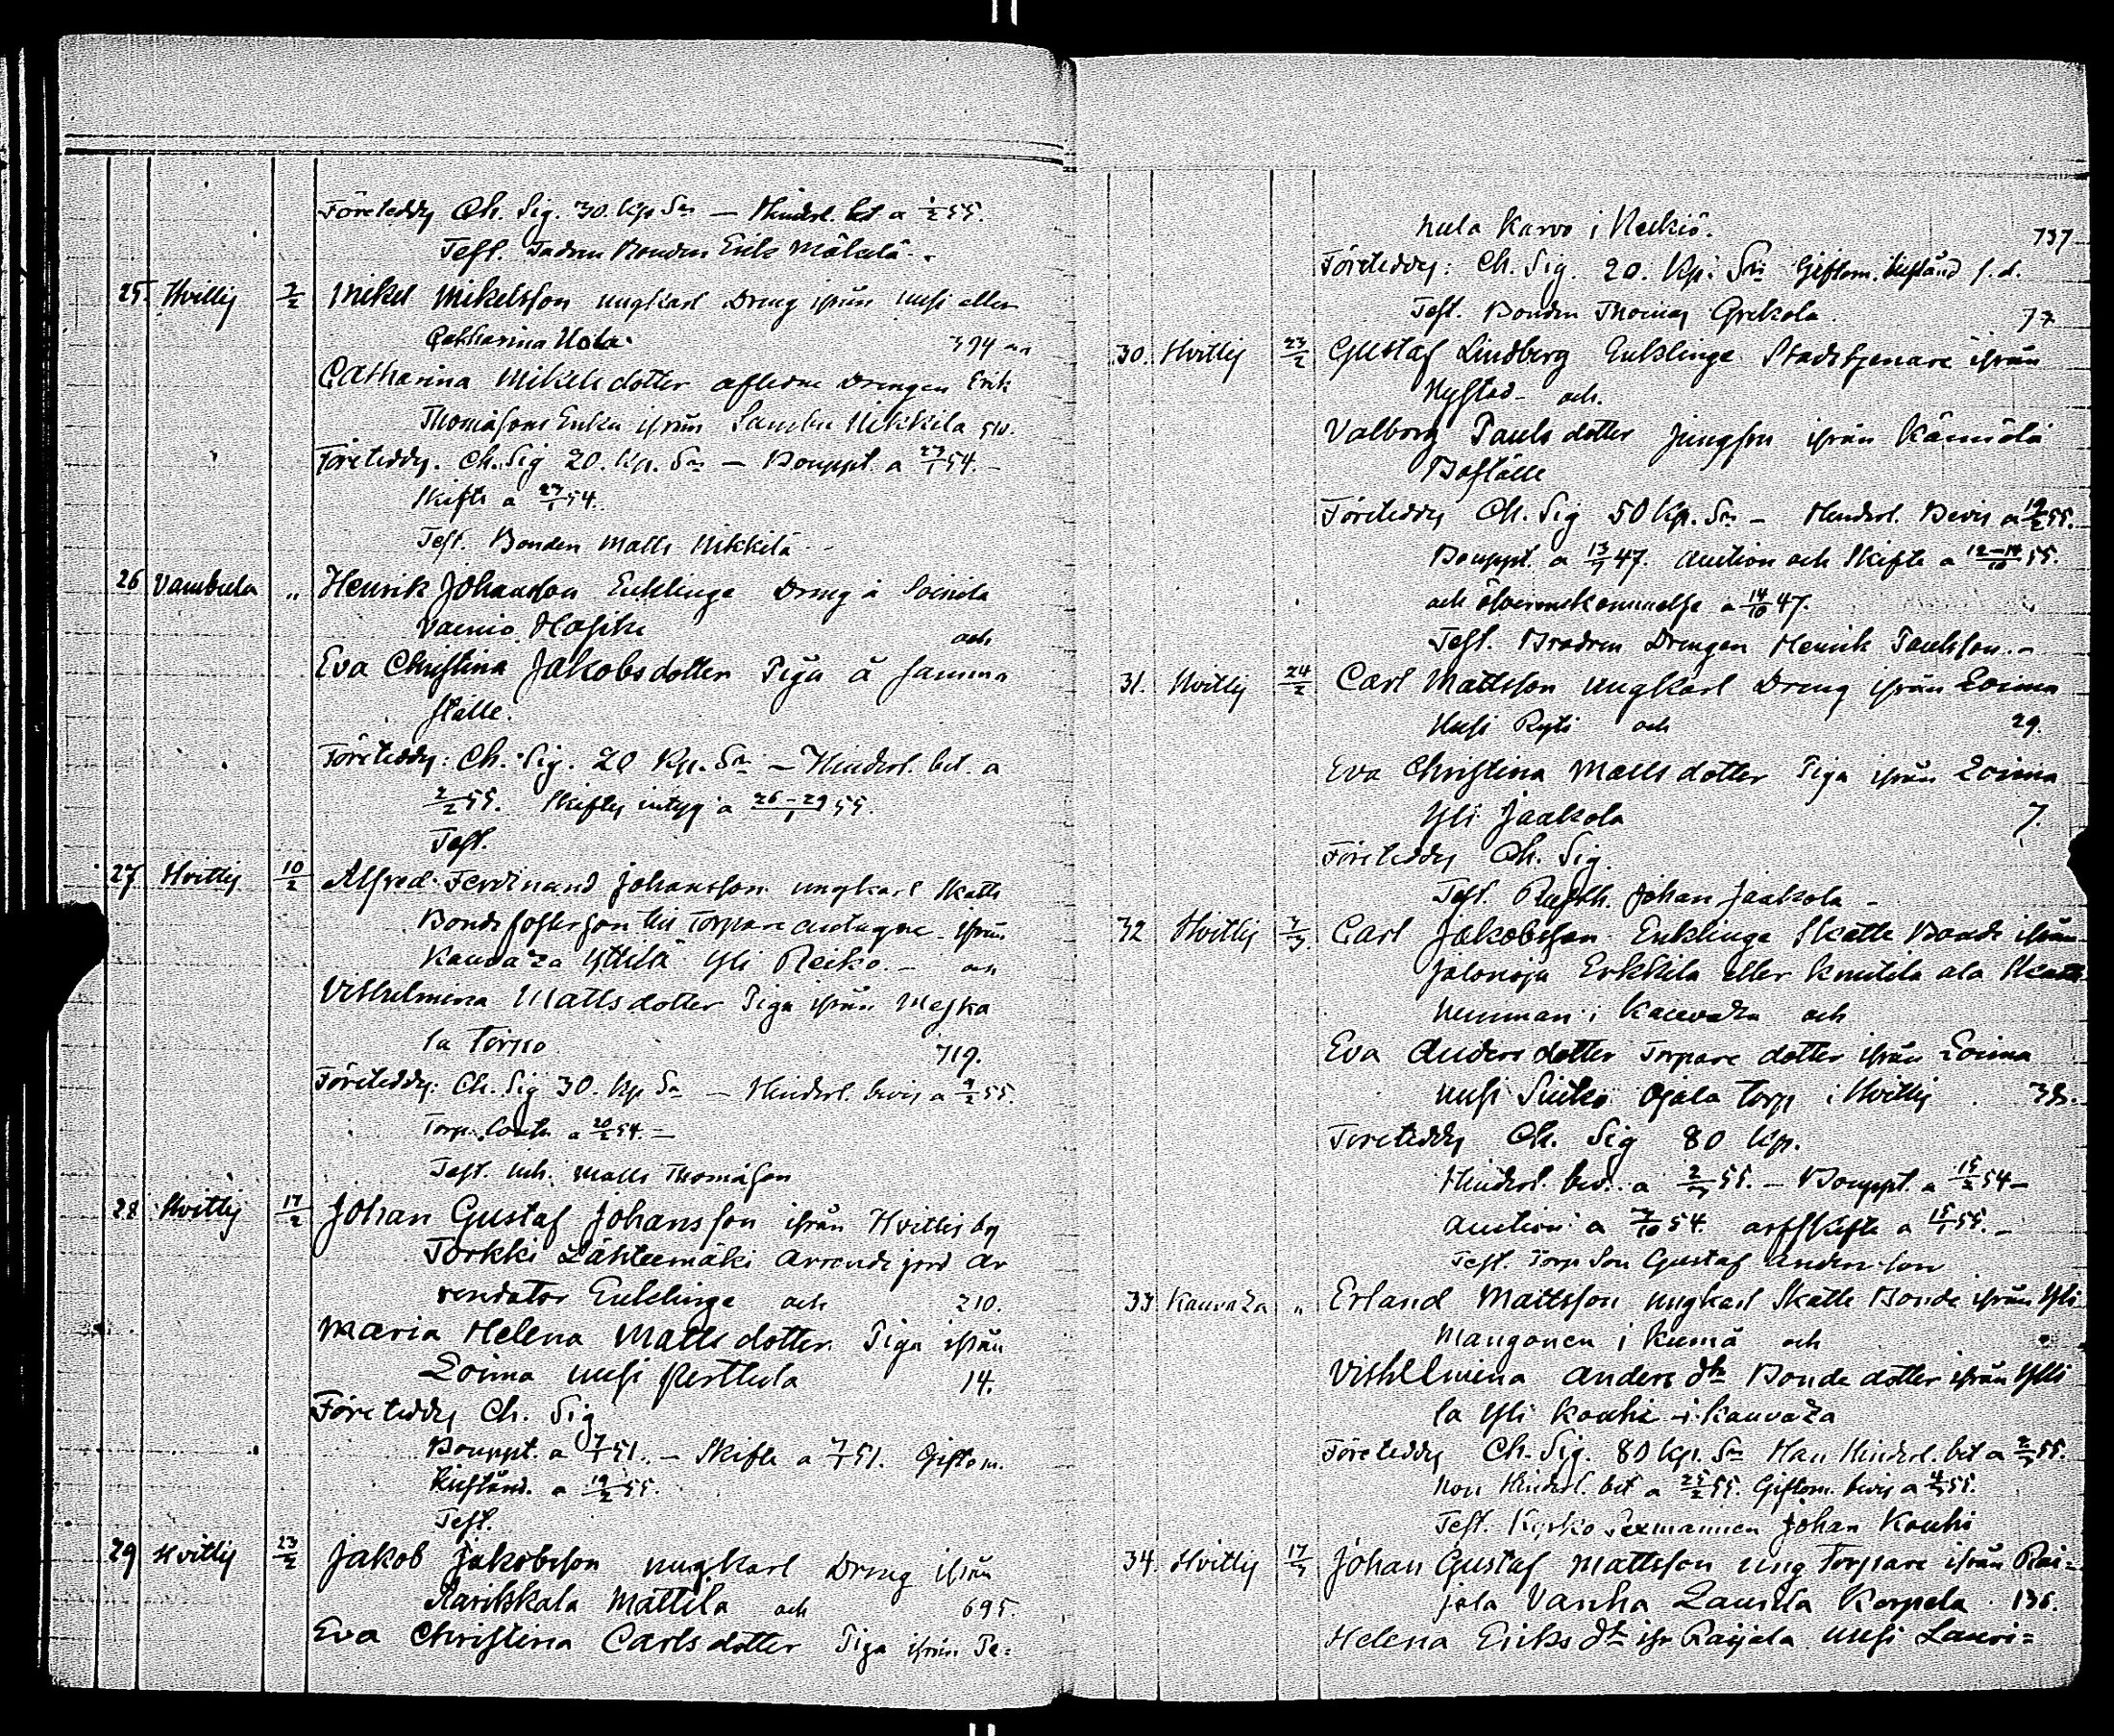 Företeddes Ch. Sig. 30. Kp Sr — Hinderl. bet a 1/2 55.
Test. Fadren Bonden Erik Mäkelä.
25. Hvittis 7/2 Mikel Mikelsson ungkarl Dreng ifrån eller
Catharina 394 och
Catharina Mikelsdotter aflidne Drengen Erik
Thomassons Enka ifrån Nikkilä 510.
Företeddes. Ch. Sig 20. Kp. Sr — Bouppt. a 27/1 54. —
Skifte a 27/1 54.
Test. Bonden Matts Nikkilä
26 Vambula " Henrik Johansson Enklinge Dreng å Soinila
Vainio och
Eva Christina Jakobsdotter Piga å samma
ställe.
Företeddes: Ch. Sig. 20 Kp. Sr — Hinderl. bet. a
2/2 55. Skiftes intyg a 26-29/1 55.
Test.
27 Hvittis 10/2 Alfred Ferdinand Johansson ungkarl Skatte
Bonde fosterson till Torpare antagne ifrån
Kauvaza Yttilä Yli Peiko. — och
Vilhelmina Mattsdotter Piga ifrån Meska
la Torpo 719.
Företeddes: Ch. Sig 30. Kp Sr — Hinderl. bevis a 9/2 55.
Torp. Contr. a 20/2 54. —
Test. Inh. Matts Thomasson
28 Hvittis 17/2 Johan Gustaf Johansson ifrån Hvittis by
Torkki Lähteemäki Arrende jord Ar
rendator Enklinge och 210.
Maria Helena Mattsdotter Piga ifrån
Loima Uusi Perttula 14.
Företeddes Ch. Sig
Bouppt. a 7/1 51. — Skifte a 7/1 51. Giftom.
tillstånd. a 19/2 55.
Test.
29 Hvittis 23/2 Jakob Jakobsson ungkarl Dreng ifrån
Karikkala Mattila och 695.
Eva Christina Carlsdotter Piga ifrån Pe=
nula Karvo i Keikiö. 737
Företeddes: Ch. Sig. 20. Kp. Sr Giftom. tillstånd s. d.
Test. Bonden Thomas Grekola. 77
30. Hvittis 23/2 Gustaf Lindberg Enklinge Stadstjenare ifrån
Nystad och.
Valborg Paulsdotter jungfru ifrån Kännölä
Boställe
Företeddes Ch. Sig 50 Kp. Sr — Hinderl. Bevis a 19/2 55.
Bouppt. a 13/7 47. Auction och Skifte a 12-14/10 55.
och öfverenskommelse a 14/10 47.
Test. Brodren Drengen Henrik Paulsson. —
31. Hvittis 24/2 Carl Mattsson ungkarl Dreng ifrån Loima
Uusi Ryti och 29.
Eva Christina Mattsdotter Piga ifrån Loima
Yli Jaakola 7.
Företeddes Ch. Sig.
Test. Rusth. Johan Jaakola —
32 Hvittis 7/3 Carl Jakobsson Enklinge Skatte Bonde ifrån
Jalonoja Erkkilä eller Knutila ala Skatte
hemman i Kauvaza och
Eva Andersdotter Torpare dotter ifrån Loima
Uusi Ojala torp i Hvittis 38.
Företeddes Ch. Sig 80 Kp.
Hinderl. bev. a 2/3 55. — Bouppt. a 15/2 54 —
Auction a 7/10 54. arfskifte a 15/1 55. —
Test. Torp Son Gustaf Andersson
33 Kauvaza " Erland Mattsson ungkarl Skatte Bonde ifrån Yli
Mangonen i Kumå och
Vilhelmina Anders dtr Bonde dotter ifrån Ytti
la Yli Kouhi i Kauvaza
Företeddes Ch. Sig. 80 Kp. Sr Han Hinderl. bet a 2/3 55.
Hon Hinderl. bet a 25/2 55. Giftom. bevis a 4/3 55.
Test. Kyrko Sexmannen Johan Kouhi
34. Hvittis 17/3 Johan Gustaf Mattsson ung Torpare ifrån Rai=
jala Vanha Laurila Korpela. 136.
Helena Eriks dtr ifr Raijala Uusi Lauri=